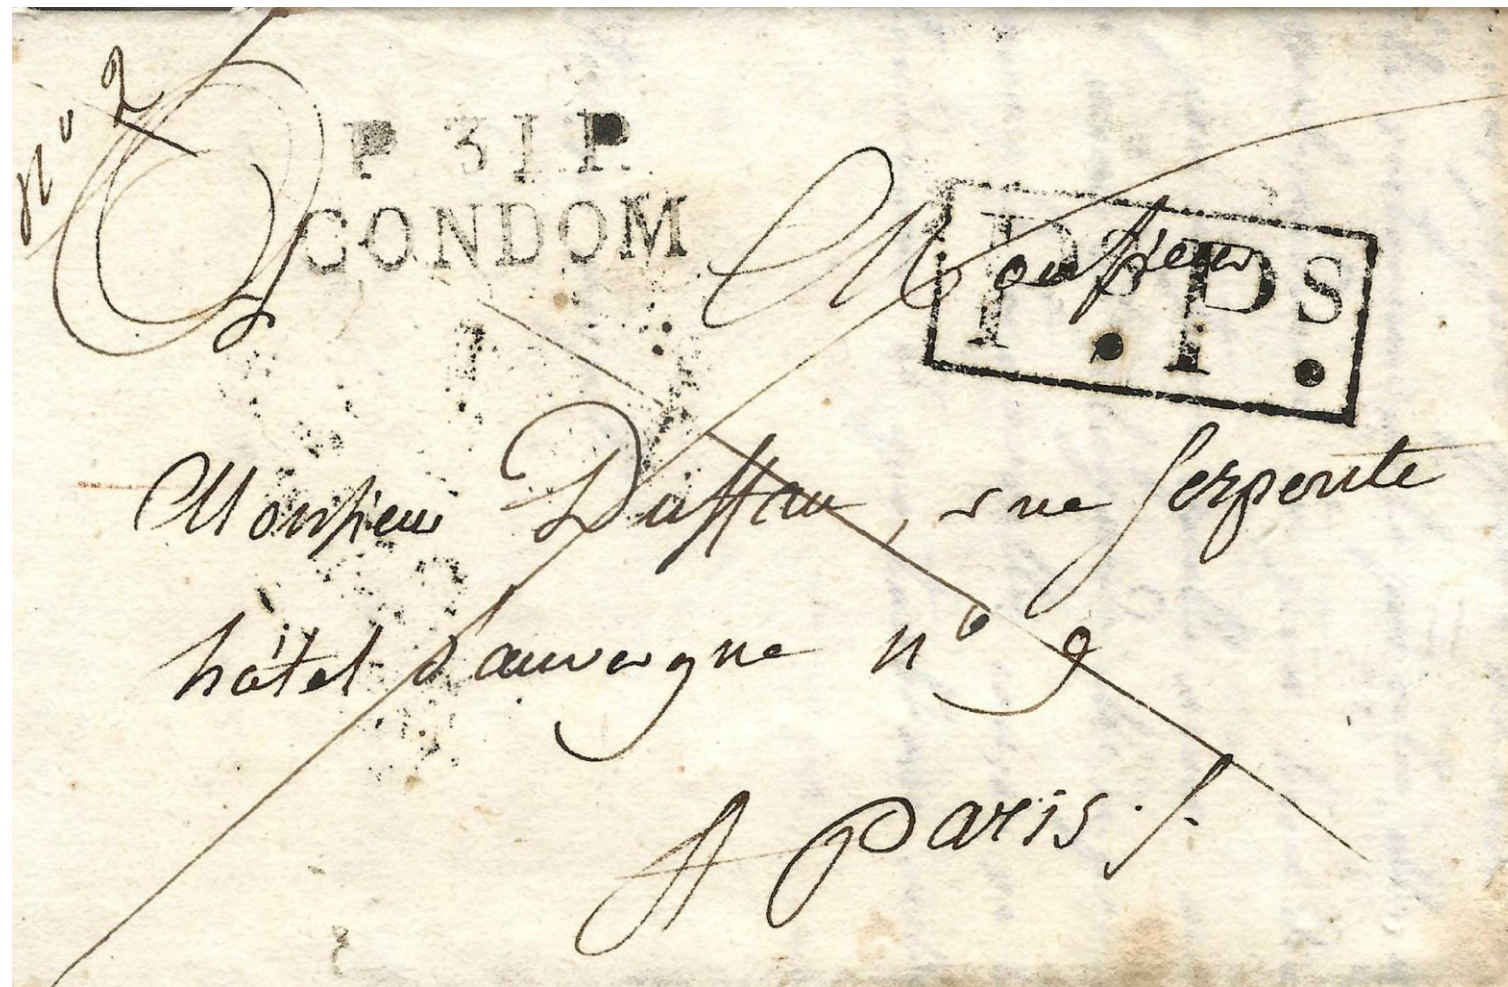 N° 2
P. 31 P.
CONDOM
Monsieur
P.s P.s
Monsieur Duffau, rue Serpente
hôtel d'auvergne n° 9
A Paris./.